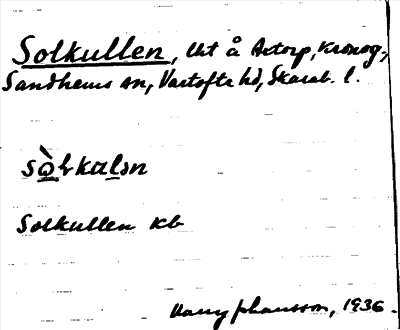 Solkullen, lht å Axtorp, Kronog.,
Sandhems sn, Vartofta hd, Skarab. l.
Solkullen Kb
Harry Jhansson, 1936.